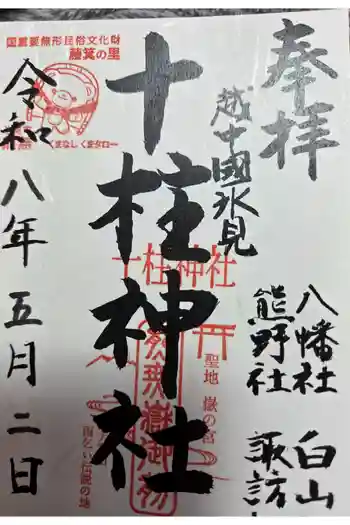 奉拝
越中國氷見
八幡社
熊野社
白山
諏訪
十柱神社
十柱神社
聖地 嶽の宮
雨乞い伝説の地
国重要無形民俗文化財
藤箕の里
くまなしくまタロー
令和八年五月二日